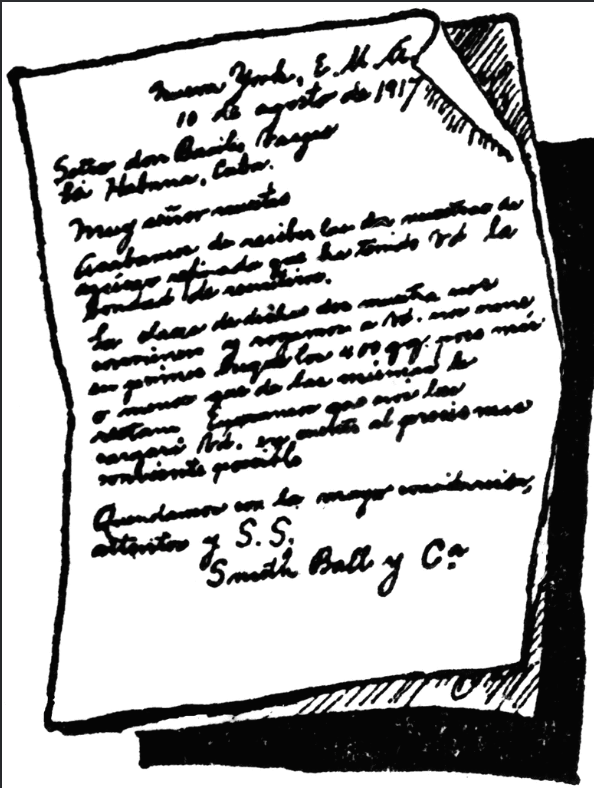 Nueva York, E. U. A.
10 de agosto de 1917
Señor don Basilio Vargas
La Habana, Cuba.
Muy señor nuestro
Acabamos de recibir las dos muestras de
azúcar refinada que ha tenido Vd la
bondad de remitirnos.
La clase de dichas dos muestra nos
convienen y rogamos a Vd. nos
en primer buque los 400 qq. poco más
o menos que de las mismas le
restan. Esperamos que nos las
cargará Vd. en cuenta al precio mas
conveniente posible
Quedamos con la mayor consideración,
atentos y S. S.
Smith Ball y Cª